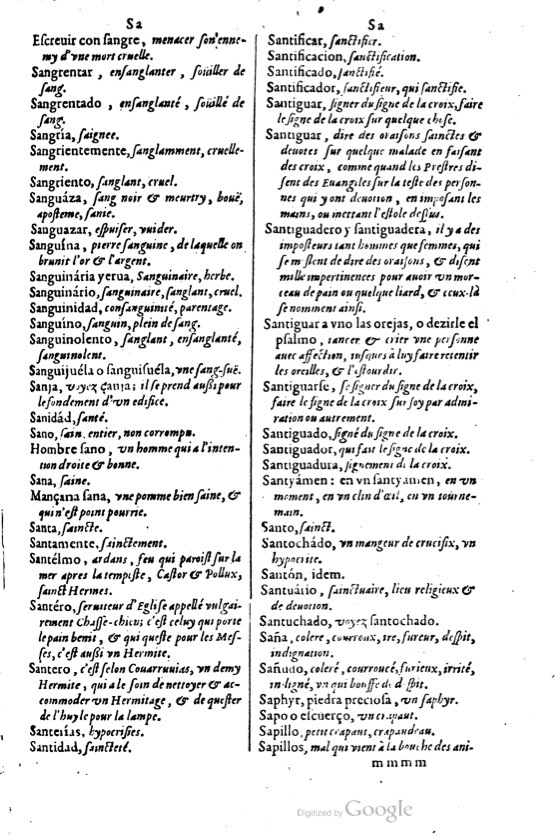 Sa
Escreuir con sangre, menacer son'enne-
my d'vne mort cruelle.
Sangrentar, ensanglanter, soüiller de
sang.
Sangrentado, ensanglanté, soüillé de
sang.
Sangría, saignee.
Sangrientemente, sanglamment, cruelle-
ment.
Sangriento, sanglant, cruel.
Sanguáza, sang noir & meurtry, bouë,
aposteme, sanie.
Sanguazar, espuiser, vuider.
Sanguína, pierre sanguine, de laquelle on
brunit l'or & l'argent.
Sanguinária yerua, Sanguinaire, herbe.
Sanguinário, sanguinaire, sanglant, cruel.
Sanguinidad, consanguinité, parentage.
Sanguíno, sanguin, plein de sang.
Sanguinolento, sanglant, ensanglanté,
sanguinolent.
Sanguijuéla o sanguisuéla, vne sang-suë.
Sanja, voyez çanja; il se prend aussi pour
le fondement d'vn edifice.
Sanidád, santé.
Sano, sain, entier, non corrompu.
Hombre sano, vn homme qui a l'inten-
tion droite & bonne.
Sana, saine.
Mançana sana, vne pomme bien saine, &
qui n'est point pourrie.
Santa, saincte.
Santamente, sainctement.
Santélmo, ardans, feu qui paroist sur la
mer apres la tempeste, Castor & Pollux,
sainct Hermes.
Santéro, seruiteur d'Eglise appellé vulgai-
rement Chasse-chien; c'est celuy qui porte
le pain benit, & qui queste pour les Mes-
ses, c'est aussi vn Hermite.
Santero, c'est selon Couarruuias, vn demy
Hermite, qui a le soin de nettoyer & ac-
commoder vn Hermitage, & de quester
de l'huyle pour la lampe.
Santerías, hypocrisies.
Santidad, saincteté.
Sa
Santificar, sanctifier.
Santificacion, sanctification.
Santificado, sanctifié.
Santificador, sanctifieur, qui sanctifie.
Santiguar, signer du signe de la croix, faire
le signe de la croix sur quelque chose.
Santiguar, dire des oraisons sainctes &
deuotes sur quelque malade en faisant
des croix, comme quand les Prestres di-
sent des Euangiles sur la teste des person-
nes qui y ont deuotion, en imposant les
mains, ou mettant l'estole dessus.
Santiguadero y santiguadera, il y a des
imposteurs tant hommes que femmes, qui
se meslent de dire des oraisons, & disent
mille impertinences pour auoir vn mor-
ceau de pain ou quelque liard, & ceux-là
se nomment ainsi.
Santiguar a vno las orejas, o dezirle el
psalmo, tancer & crier vne personne
auec affection, iusques à luy faire retentir
les oreilles, & l'estourdir.
Santiguarse, se signer du signe de la croix,
faire le signe de la croix sur soy par admi-
ration ou autrement.
Santiguado, signé du signe de la croix.
Santiguador, qui fait le signe de la croix.
Santiguadura, signement de la croix.
Santyámen: en vn santyamen, en vn
moment, en vn clin d'œil, en vn tourne-
main.
Santo, sainct.
Santochádo, vn mangeur de crucifix, vn
hypocrite.
Santón, idem.
Santuário, sainctuaire, lieu religieux &
de deuotion.
Santuchado, voyez santochado.
Saña, colere, courroux, ire, fureur, despit,
indignation.
Sañudo, coleré, courroucé, furieux, irrité,
indigné, vn qui bouffe de despit.
Saphyr, piedra preciosa, vn saphyr.
Sapo o escuerço, vn crapaut.
Sapillo, petit crapaut, crapaudeau.
Sapillos, mal qui vient à la bouche des ani-
m m m m
Digitized by Google